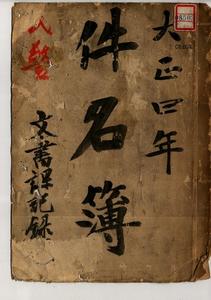 大正四年
件名簿
文書課記録